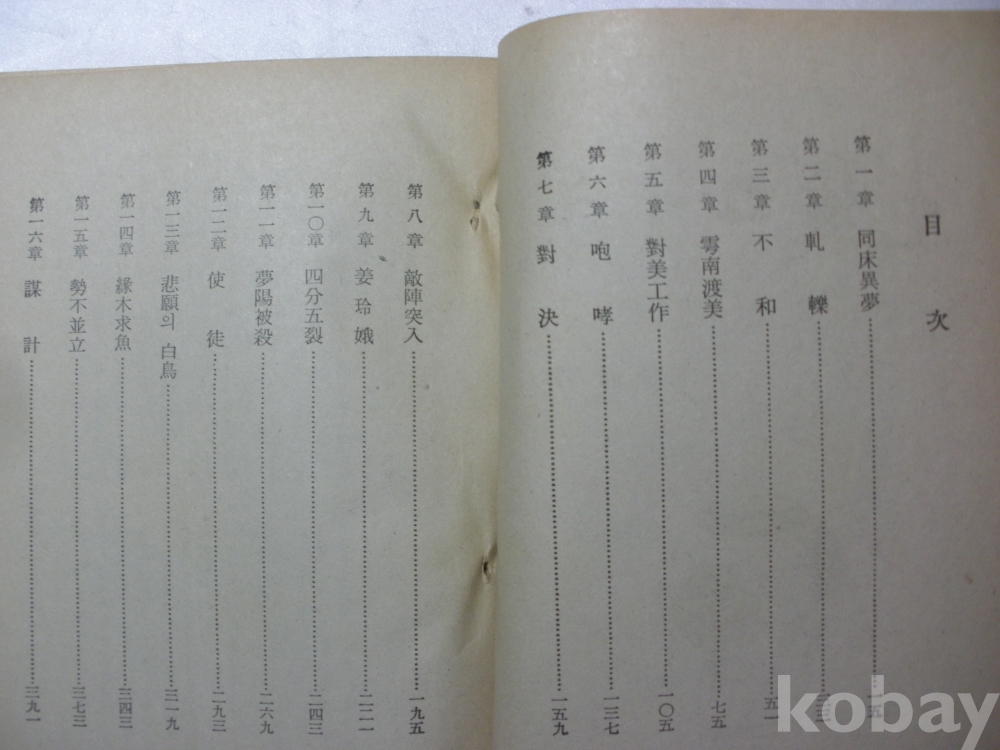 目次
第一章 同床異夢 一五
第二章 軋轢 三三
第三章 不和 五一
第四章 雩南渡美 七五
第五章 對美工作 一〇五
第六章 咆哮 一三七
第七章 對決 一五九
第八章 敵陣突入 一九五
第九章 姜玲娥 二二一
第一〇章 四分五裂 二四三
第一一章 夢陽被殺 二六九
第一二章 使徒 二九三
第一三章 悲願의 白鳥 三一九
第一四章 緣木求魚 三四三
第一五章 勢不並立 三七三
第一六章 謀計 三九一
kobay